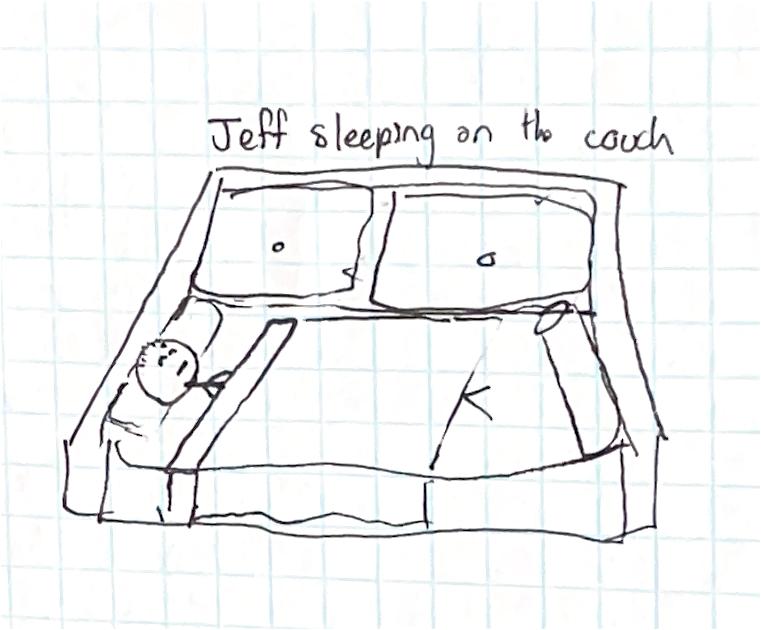 Jeff sleeping on the couch